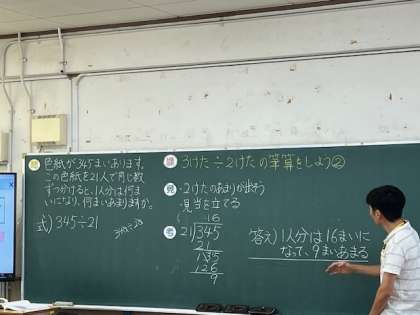 色紙が345まいあります。
この色紙を21人で同じ数
ずつ分けると、1人分は何ま
いになり、何まいあまりますか。
式)345÷21
課 3けた÷2けたの筆算をしよう②
見 ・2けたのあまりが出そう
・見当を立てる
考
16
21)345
21
135
126
9
答え)1人分は16まいに
なって、9まいあまる